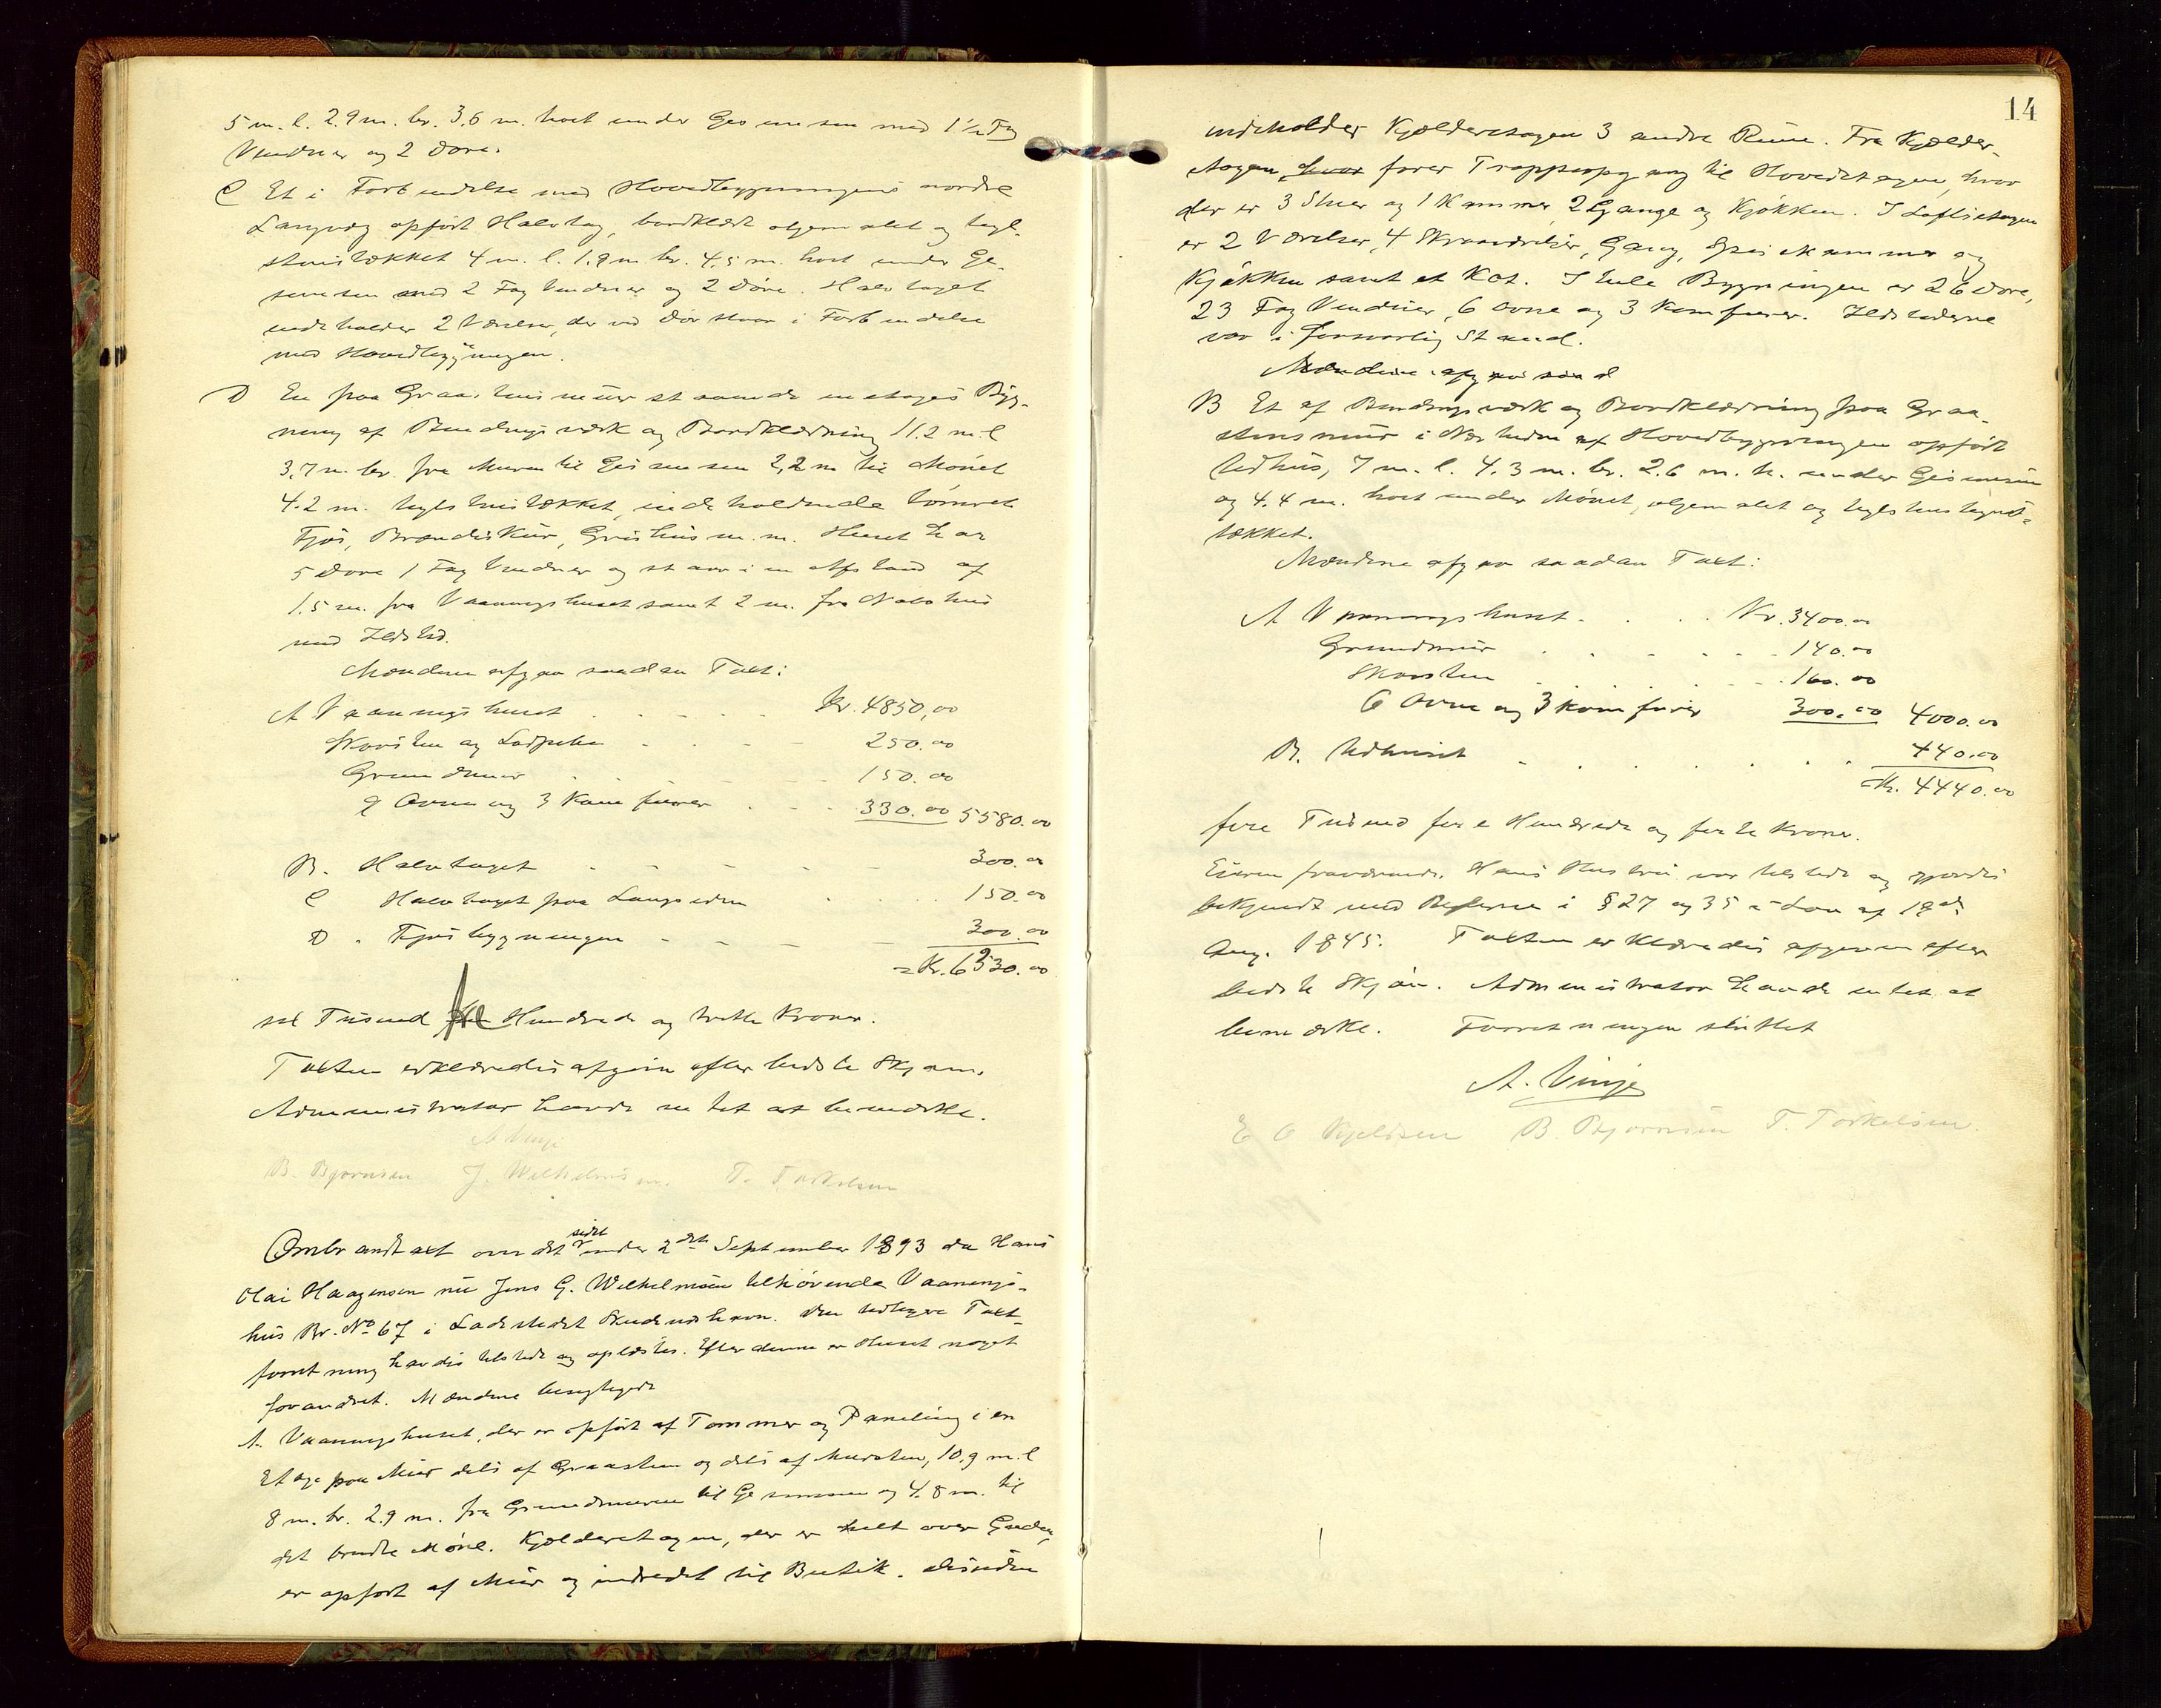 5 m. l. 2.9 m. br. 3.6 m. høit under Gesimsen med 1½ Fag
Vinduer og 2 Døre.
C Et i Forbindelse med Hovedbygningens nordre
Langvæg opført Halvtag, bordklædt oljemalet og tagl-
stenstækket 4 m. l. 1.8 m. br. 4.5 m. høit under Ge-
simsen med 2 Fag Vinduer og 2 Døre. Halvtaget
indeholder 2 Værelser, der ved Dør staar i Forbindelse
med Hovedbygningen.
D En paa Graastensmuur staaende enetages Byg-
ning af Bindingsværk og Bordklædning 11.2 m. l
3,7 m. br. fra Muren til Gesimsen 2,2 m til Mønet
4.2 m. taglstenstækket, indeholdende tømret
Fjøs, Brændeskur, Grishus m. m. Huset har
5 Døre 1 Fag Vinduer og staar i en Afstand af
1.5 m. fra Vaaningshuset samt 2 m. fra Nabohus
med Ildsted.
Mændene afgav saadan Taxt:
A Vaaningshuset . . . . . Kr. 4850,00
Skorsten og Ladpipe . . . 250.00
Grundmuur . . . 150.00
9 Ovne og 3 Komfurer . . . 330.00 5580.00
B. Halvtaget . . . . . 300.00
C Halvtaget paa Langsiden . . . 150.00
D. Fjøsbygningen . . . . 300.00
= Kr. 6330.00
sex Tusend tre Hundrede og tretti Kroner.
Taxten erklæredes afgiven efter bedste Skjøn.
Administrator havde intet at bemærke.
A Vinje
B. Bjørnsen J. Wilhelmsen. T. Torkelsen
Ombrandtaxt over det sidst under 2det September 1893 da Hans
Olai Haagensen nu Jens G. Wilhelmsen tilhørende Vaanings-
hus Br. No 67 i Ladestedet Skudeneshavn. Den tidligere Taxt-
forretning havdes tilstede og oplæstes. Efter denne er Huset noget
forandret. Mændene besigtigede
A. Vaaningshuset, der er opført af Tømmer og Paneling i en
Etage paa Muur dels af Graasten og dels af Mursten, 10.9 m. l
8 m. br. 2.9 m. fra Grundmuren til Gesimsen og 4.8 m. til
det brudte Møne. Kjælderetagen, der er helt over Jorden,
er opført af Muur og indredet til Butik. Desuden
14
indeholder Kjælderetagen 3 andre Rum. Fra Kjælder-
etagen hvor fører Trappeopgang til Hovedetagen, hvor
der er 3 Stuer og 1 Kammer 2 Gange og Kjøkken. I Loftsetagen
er 2 Værelser, 4 Skraaværelser, Gang, Spiskammer og
Kjøkken samt et Kot. I hele Bygningen er 26 Døre,
23 Fag Vinduer, 6 Ovne og 3 Komfurer. Ildstederne
var i forsvarlig Stand.
Mændene afgav saad
B Et af Bindingsværk og Bordklædning paa Graa-
stensmuur i Nærheden af Hovedbygningen opført
Udhus, 7 m. l. 4.3 m. br. 2.6 m. h. under Gesimsen
og 4.4 m. høit under Mønet, oljemalet og taglstens
tækket.
Mændene afgav saadan Taxt:
A Vaaningshuset . . . . Kr. 3400.00
Grundmuur . . . . . 140.00
Skorsten . . . . . 160.00
6 Ovne og 3 Komfurer 300.00 4000.00
B. Udhuset . . . . . . 440.00
Kr. 4440.00
fire Tusend fire Hundrede og førti Kroner.
Eieren fraværende. Hans Hustru var tilstede og gjordes
bekjendt med Reglerne i § 27 og 35 i Lov af 19de
Aug. 1845. Taxten erklæredes afgiven efter
bedste Skjøn. Administrator havde intet at
bemærke. Forretningen sluttet
A. Vinje
E O Kjeldsen B. Bjørnsen T. Torkelsen.